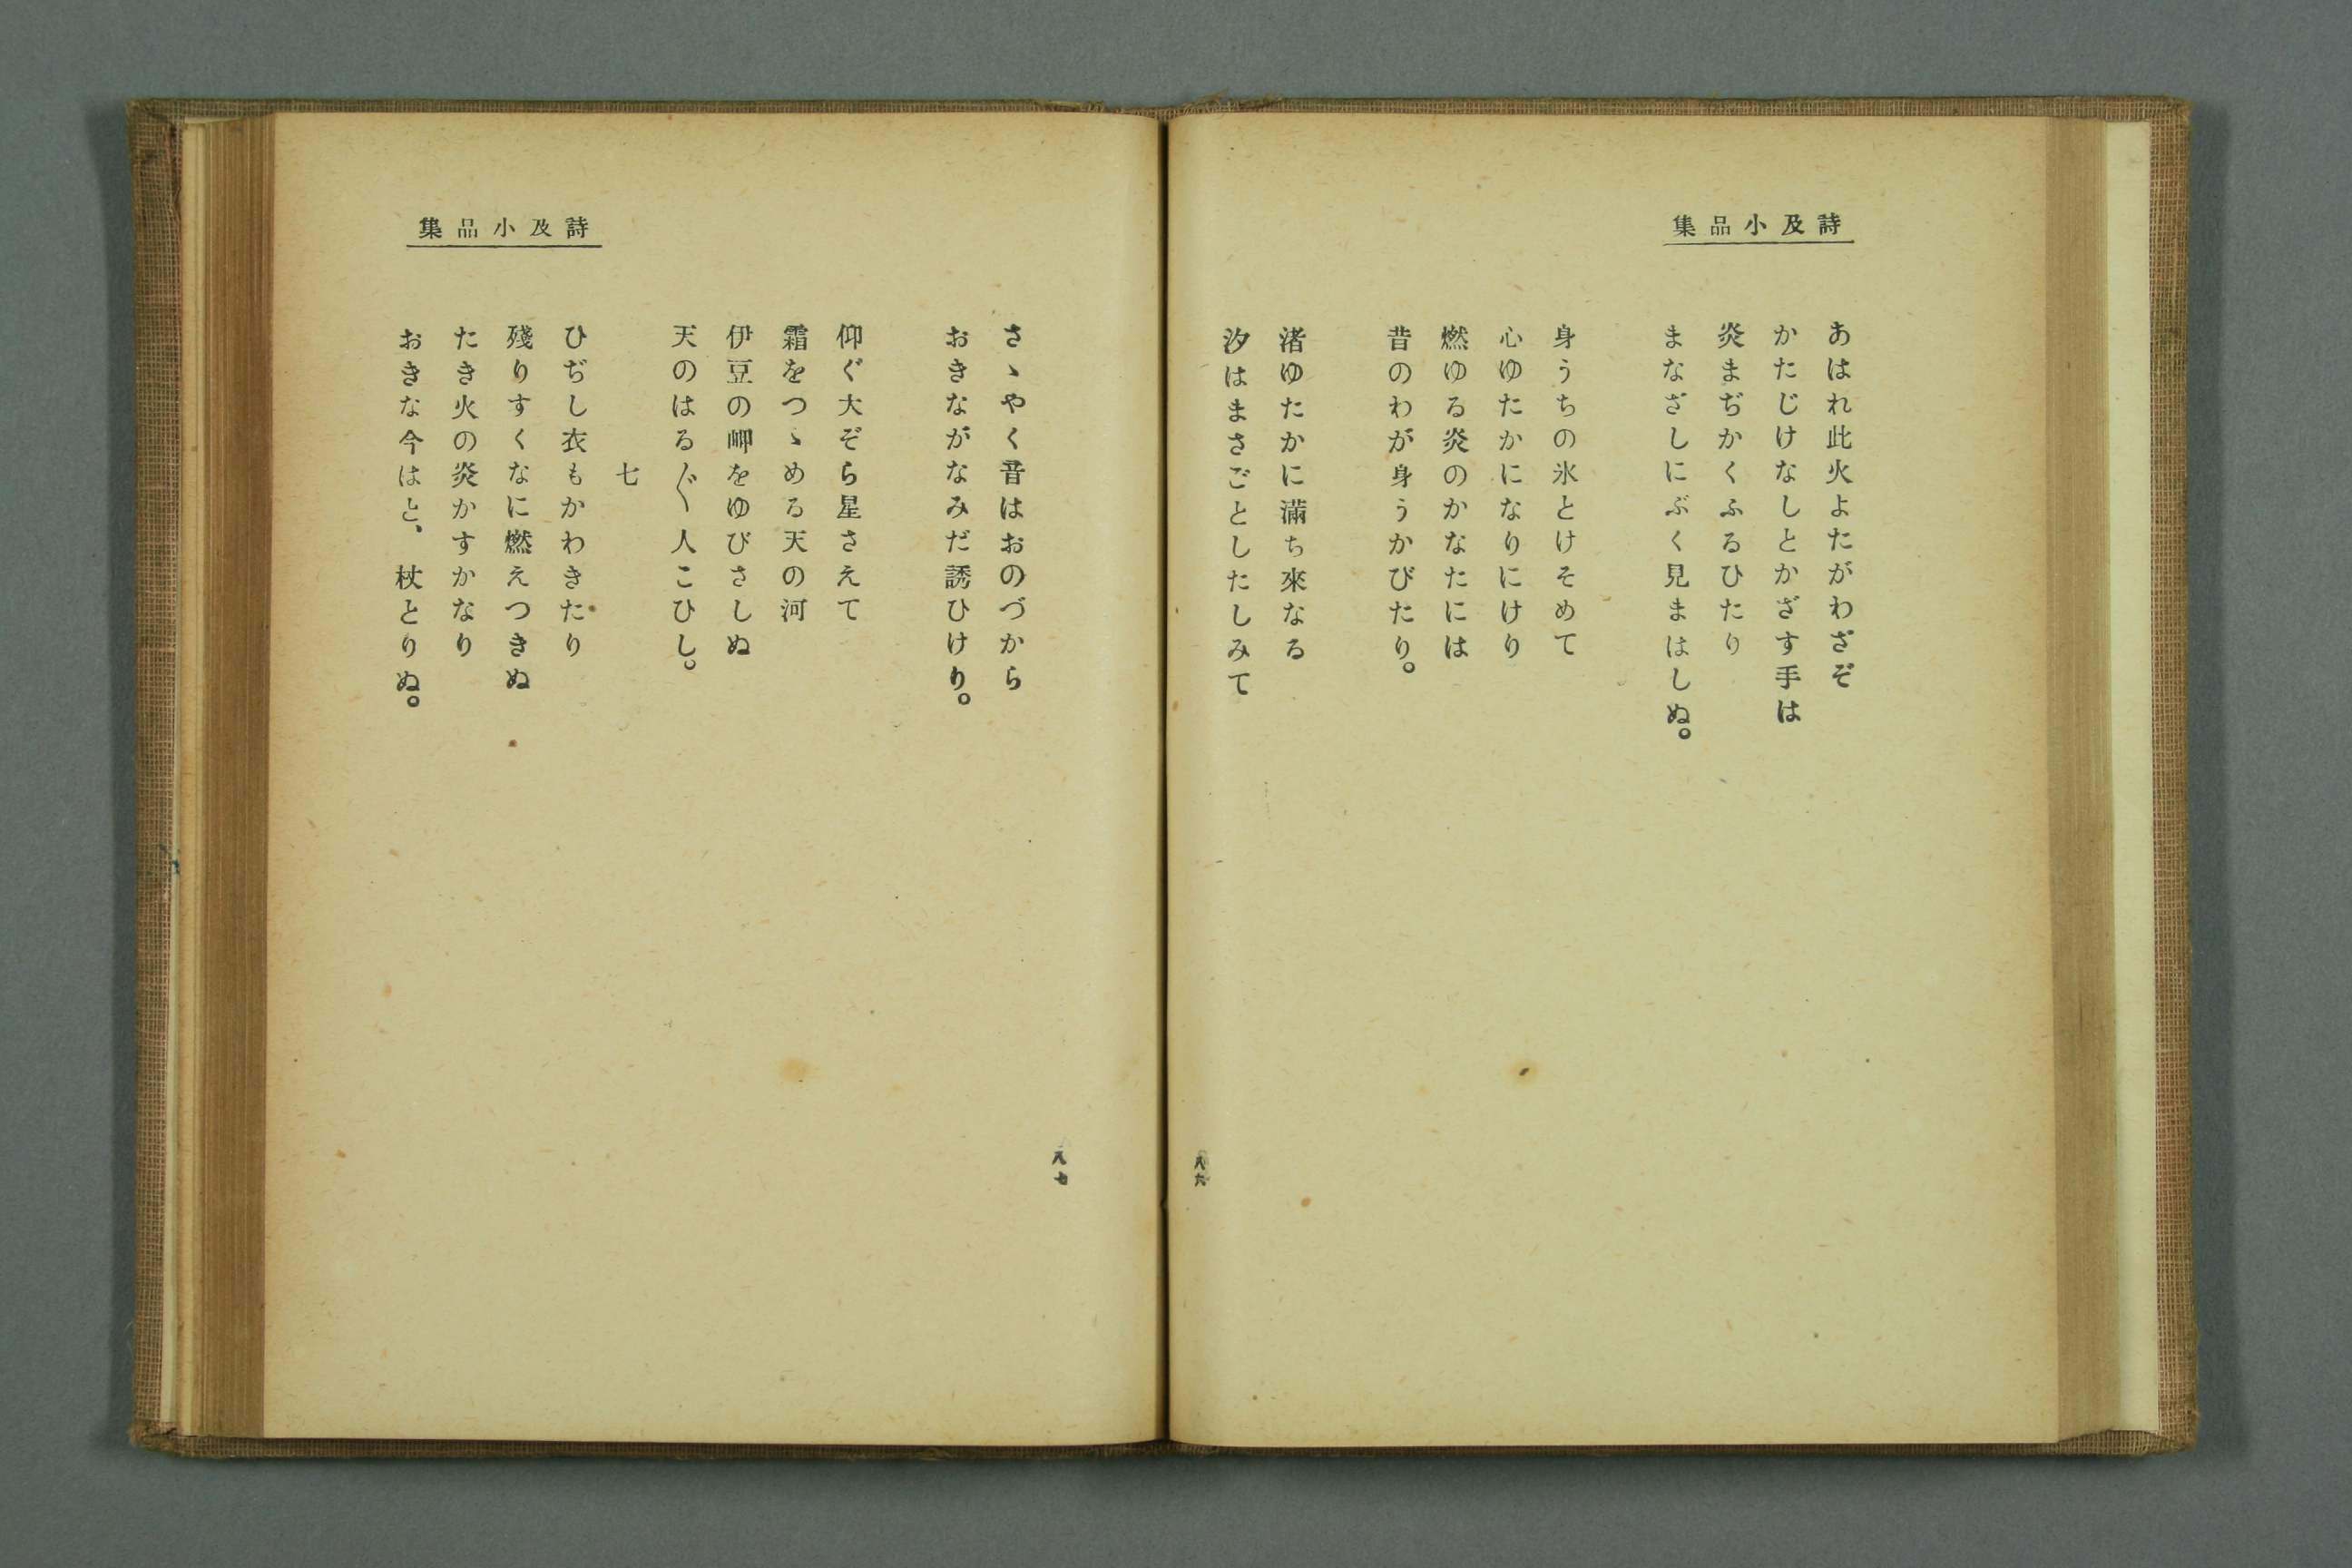 詩及小品集
あはれ此火よたがわざぞ
かたじけなしとかざす手は
炎まぢかくふるひたり
まなざしにぶく見まはしぬ。
身うちの氷とけそめて
心ゆたかになりにけり
燃ゆる炎のかなたには
昔のわが身うかびたり。
渚ゆたかに滿ち來なる
汐はまさごとしたしみて
八六
詩及小品集
さゝやく音はおのづから
おきながなみだ誘ひけり。
仰ぐ大ぞら星さえて
霜をつゝめる天の河
伊豆の岬をゆびさしぬ
天のはる〴〵人こひし。
七
ひぢし衣もかわきたり
殘りすくなに燃えつきぬ
たき火の炎かすかなり
おきな今はと、杖とりぬ。
八七